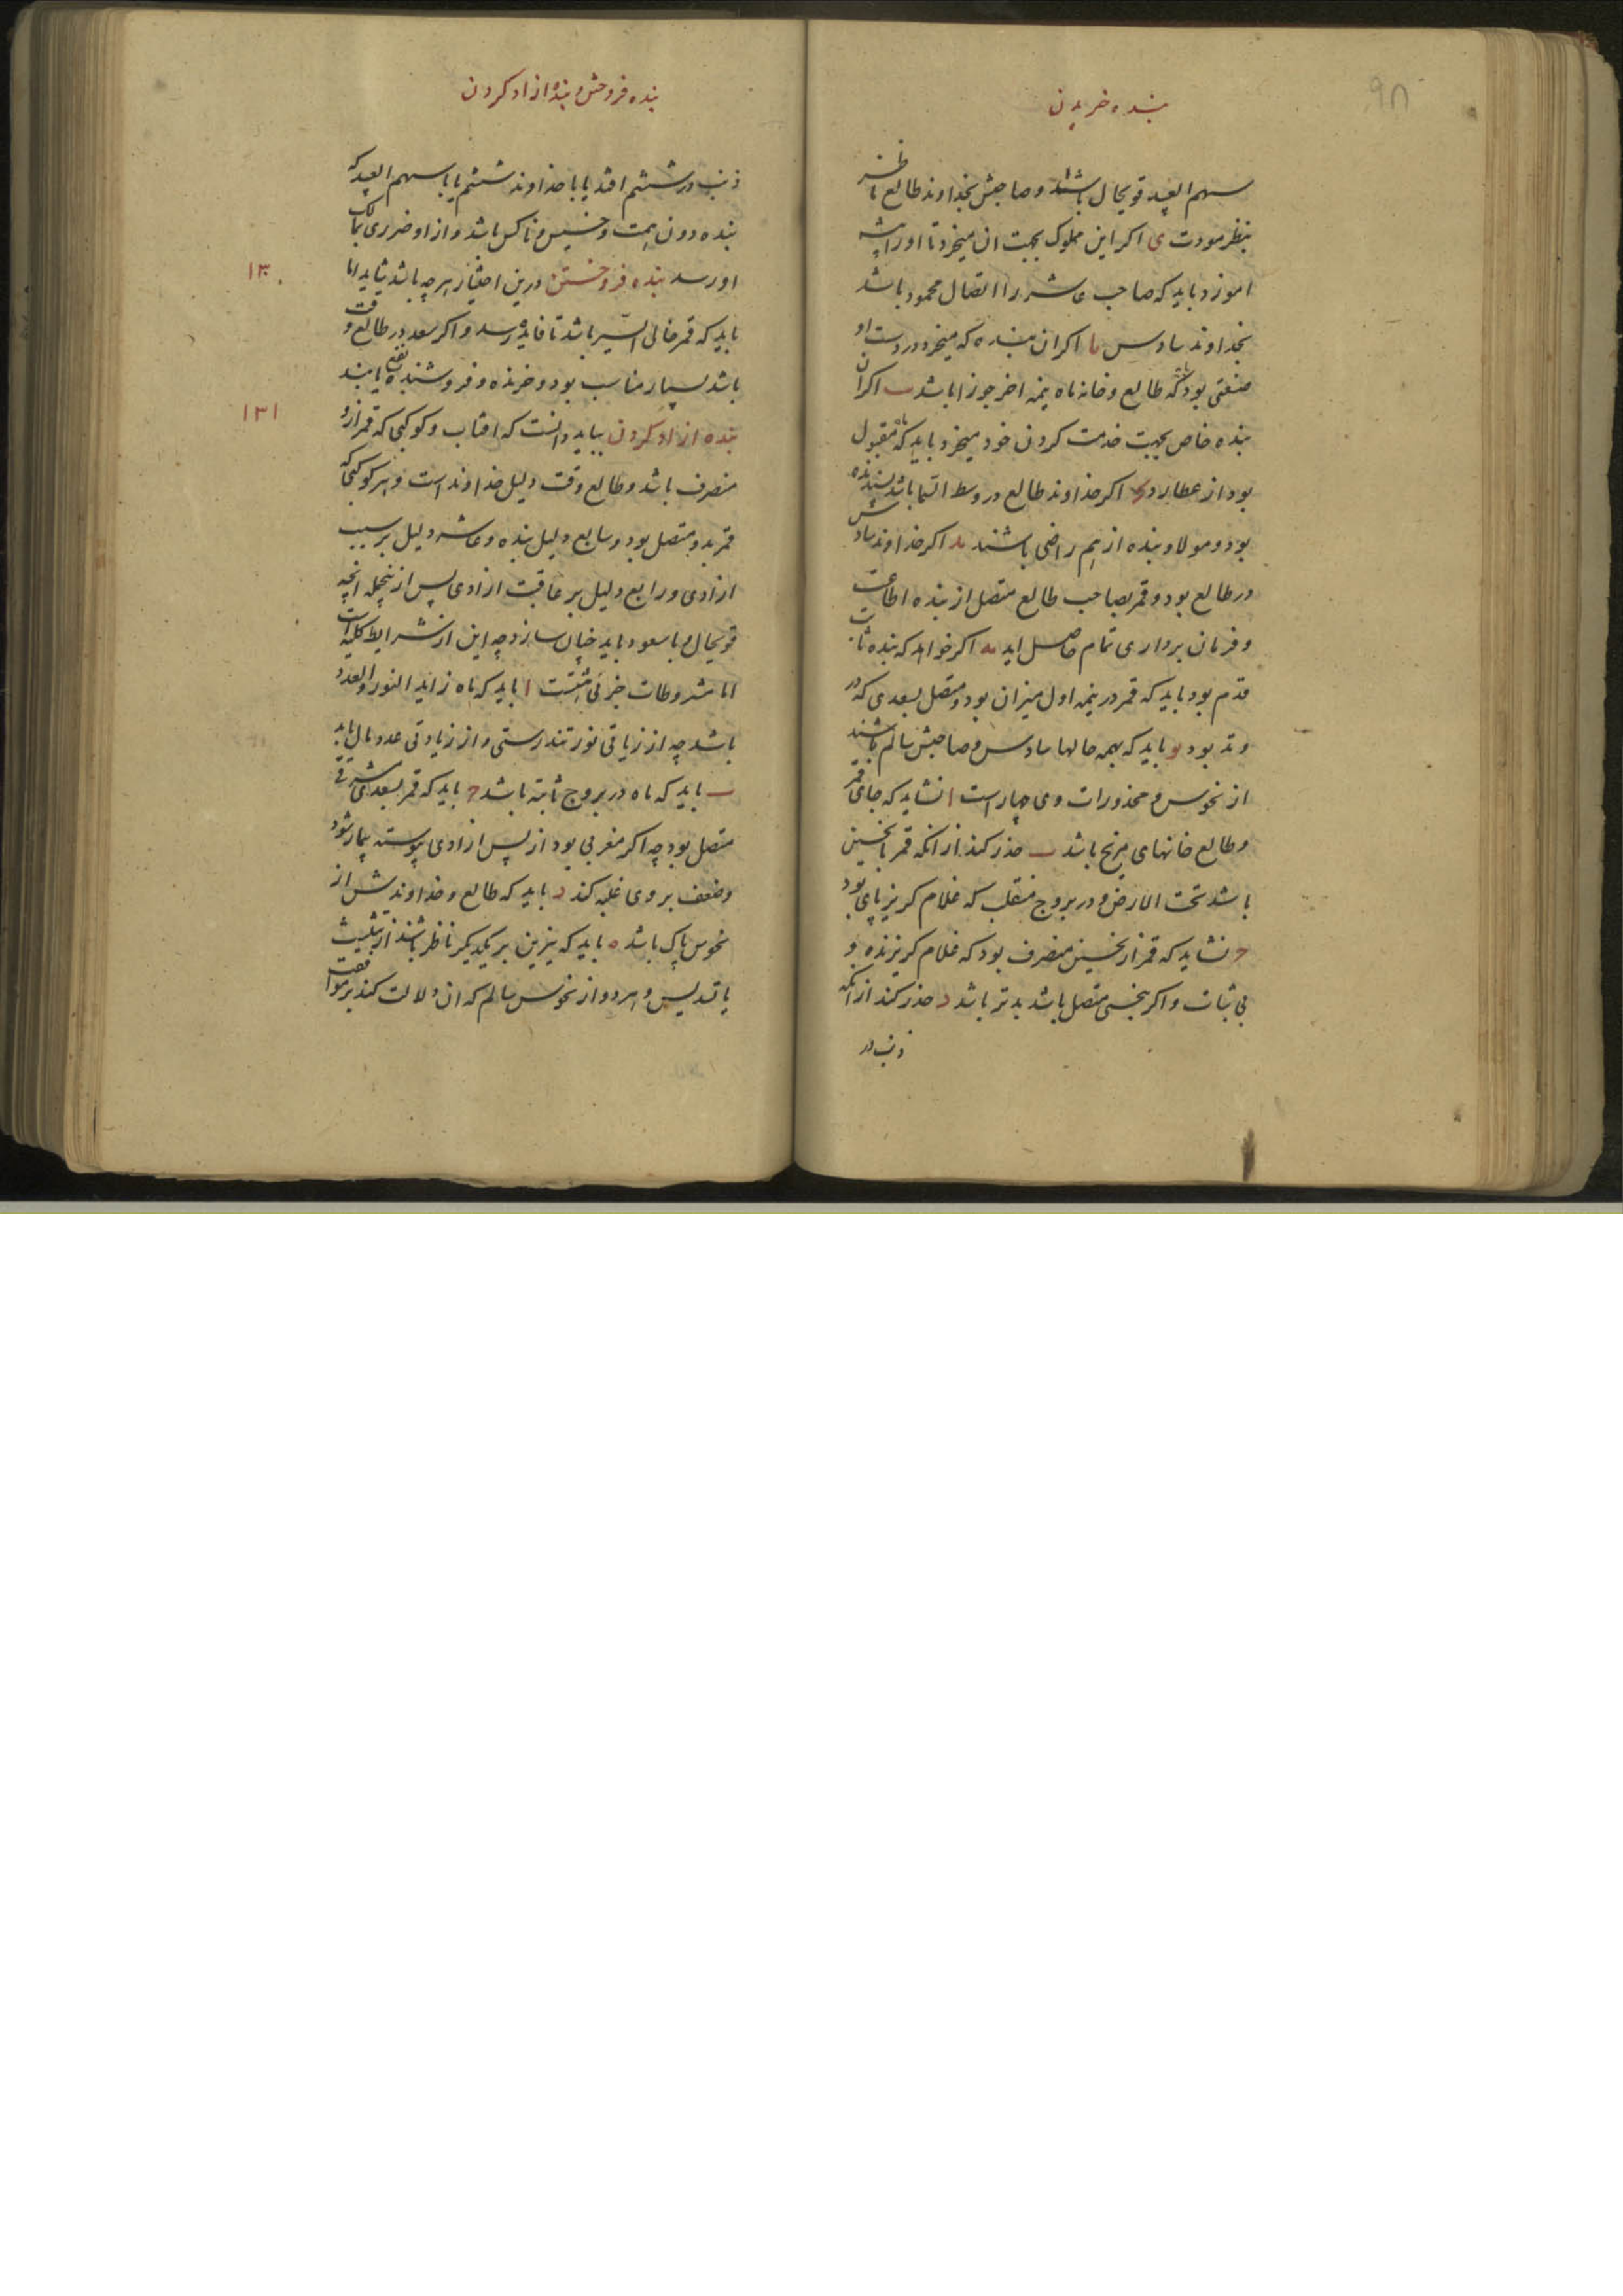 ۹۸
بنده خریدن
سهم العبید قویحال باشند و صاحبش بخداوند طالع ناظر
بنظر مودت ی اکر این مملوک بجهت ان میخرد تا او را پیشه
اموزد باید که صاحب عاشر را اتصال محمود باشد
بخداوند سادس یا اکر ان بنده که میخرد در دست او
صنعتی بود باید که طالع و خانه ماه نیمه اخر جوزا باشد یب اکر ان
بنده خاص بجهت خدمت کردن خود میخرد باید که ماه مقبول
بود از عطارد یج اکر خداوند طالع در وسط السما باشد پسندیده
بود و مولا و بنده از هم راضی باشند ید اکر خداوند سادس
در طالع بود و قمر بصاحب طالع متصل از بنده اطاعت
و فرمان برداری تمام حاصل اید یه اکر خواهد که بنده ثابت
قدم بود باید که قمر در نیمه اول میزان بود و متصل بسعدی که در
وتد بود یو باید که بهمه حالها سادس و صاحبش سالم باشند
از نحوس و محذورات وی چهار است ا نشاید که جای قمر
و طالع خانهای مریخ باشد ب حذر کند از انکه قمر با نحسین
باشد تحت الارض و در بروج منقلب که غلام کریز پای بود
ج نشاید که قمر از نحسین منصرف بود که غلام کریزنده و
بی ثبات و اکر بنحسی متصل باشد بدتر باشد د حذر کند از انکه
ذنب در
بنده فروختن و بنده ازاد کردن
ذنب در ششم افتد یا با خداوند ششم یا با سهم العبید که
بنده دون همت و خسیس و ناکس باشد و از او ضرری بمالک
او رسد بنده فروختن درین اختیار هر چه باشد شاید اما
۱۳۰
باید که قمر خالی السیر باشد تا فایده رسد و اکر سعد در طالع وقت
باشد بسیار مناسب بود و خرنده و فروشنده نفع یابند
بنده ازاد کردن بباید دانست که افتاب و کوکبی که قمر ازو
۱۳۱
منصرف باشد و طالع وقت دلیل خداوند است و هر کوکبی که
قمر بدو متصل بود و سابع دلیل بنده و عاشر دلیل بر سبب
ازادی و رابع دلیل بر عاقبت ازادی پس ازینجمله انچه
قویحال و باسعود باید چنان سازد چه این از شرایط کلیه است
اما مشروطات جزئی هشتست ا باید که ماه زاید النور و العدد
باشد چه از زیاتی نور تندرستی و از زیادتی عدد مال یابد
ب باید که ماه در بروج ثابته باشد ج باید که قمر بسعدی مشرقی
متصل بود چه اکر مغربی بود از پس ازادی پیوسته بیمار شود
و ضعف بر وی غلبه کند د باید که طالع و خداوندش از
نحوس پاک باشد ه باید که نیرین بر یکدیکر ناظر باشند از تثلیث
یا تسدیس و هر دو از نحوس سالم که ان دلالت کند بر موافقت